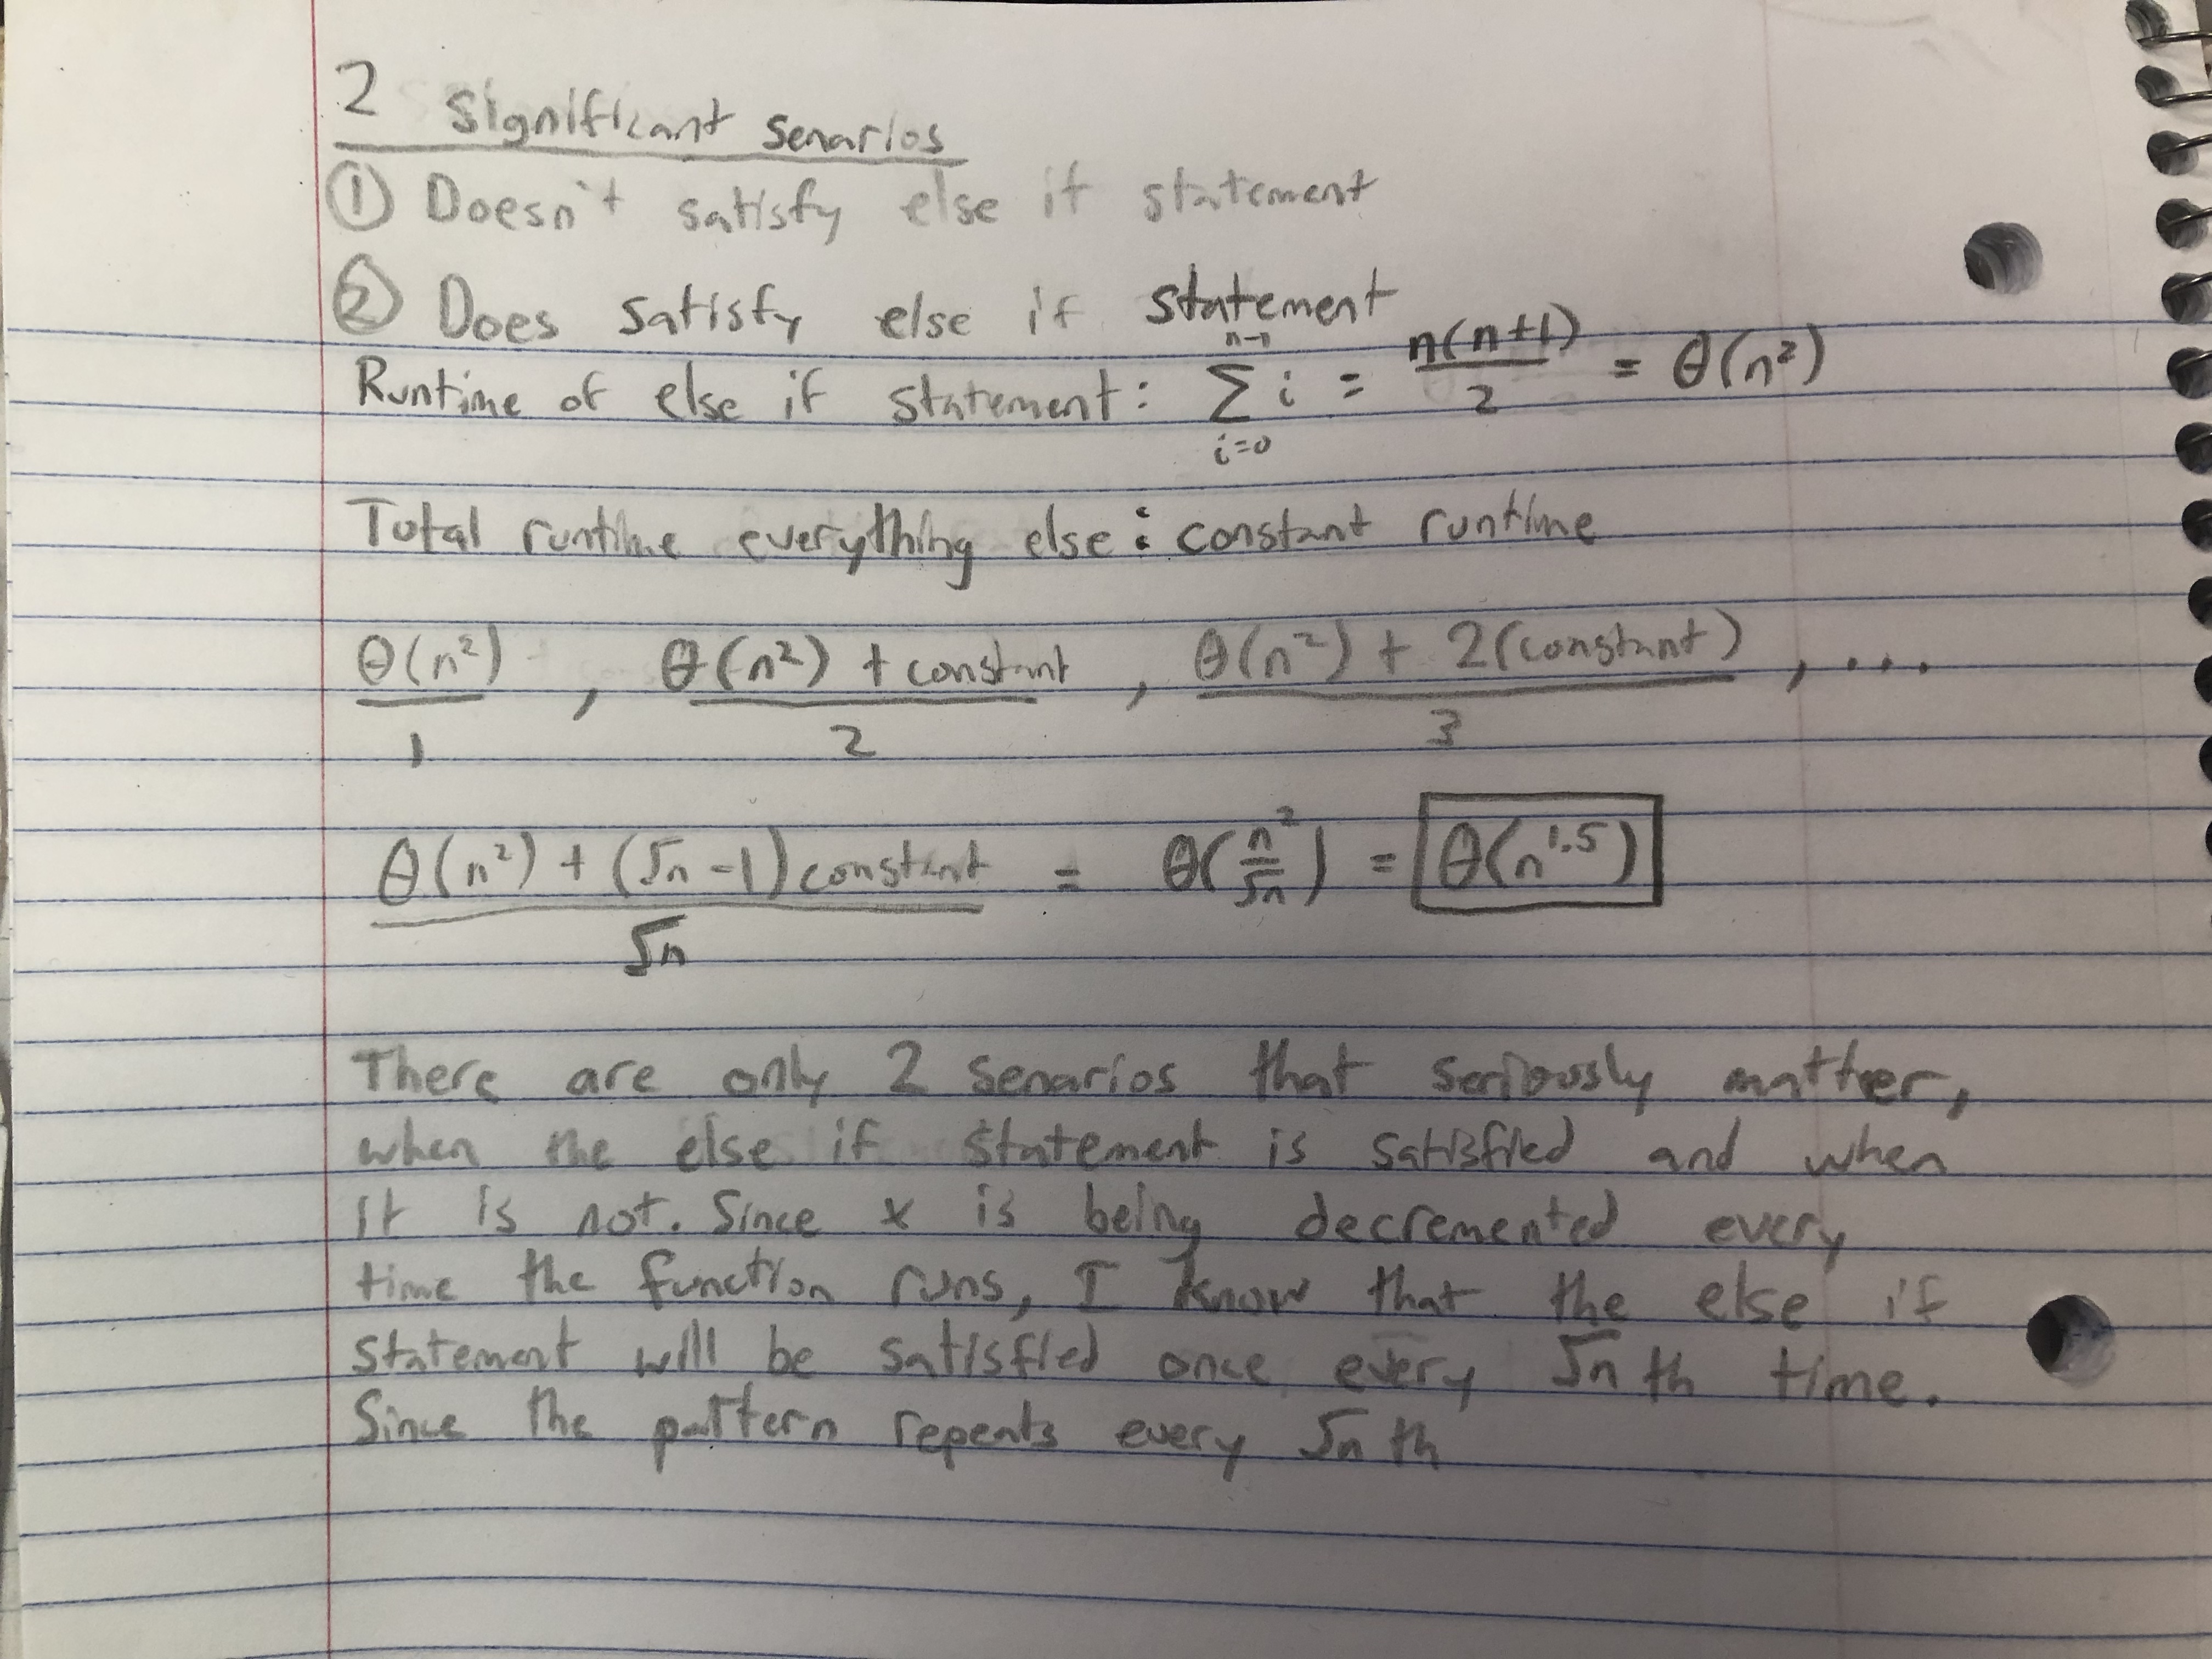 2 Significant Senarios
① Doesn't satisfy else if statement
② Does satisfy else if statement
Runtime of else if statement: \sum_{i=0}^{n-1} i = \frac{n(n+1)}{2} = θ(n²)
Total runtime everything else: constant runtime
\frac{θ(n²)}{1}, \frac{θ(n²) + constant}{2}, \frac{θ(n²) + 2(constant)}{3}, ....
\frac{θ(n²) + (√n - 1) constant}{√n} = θ(\frac{n²}{√n}) = θ(n^{1.5})
There are only 2 senarios that seriously matter,
when the else if statement is satisfied and when
it is not. Since x is being decremented every
time the function runs, I know that the else if
statement will be satisfied once every √n th time.
Since the pattern repeats every √n th